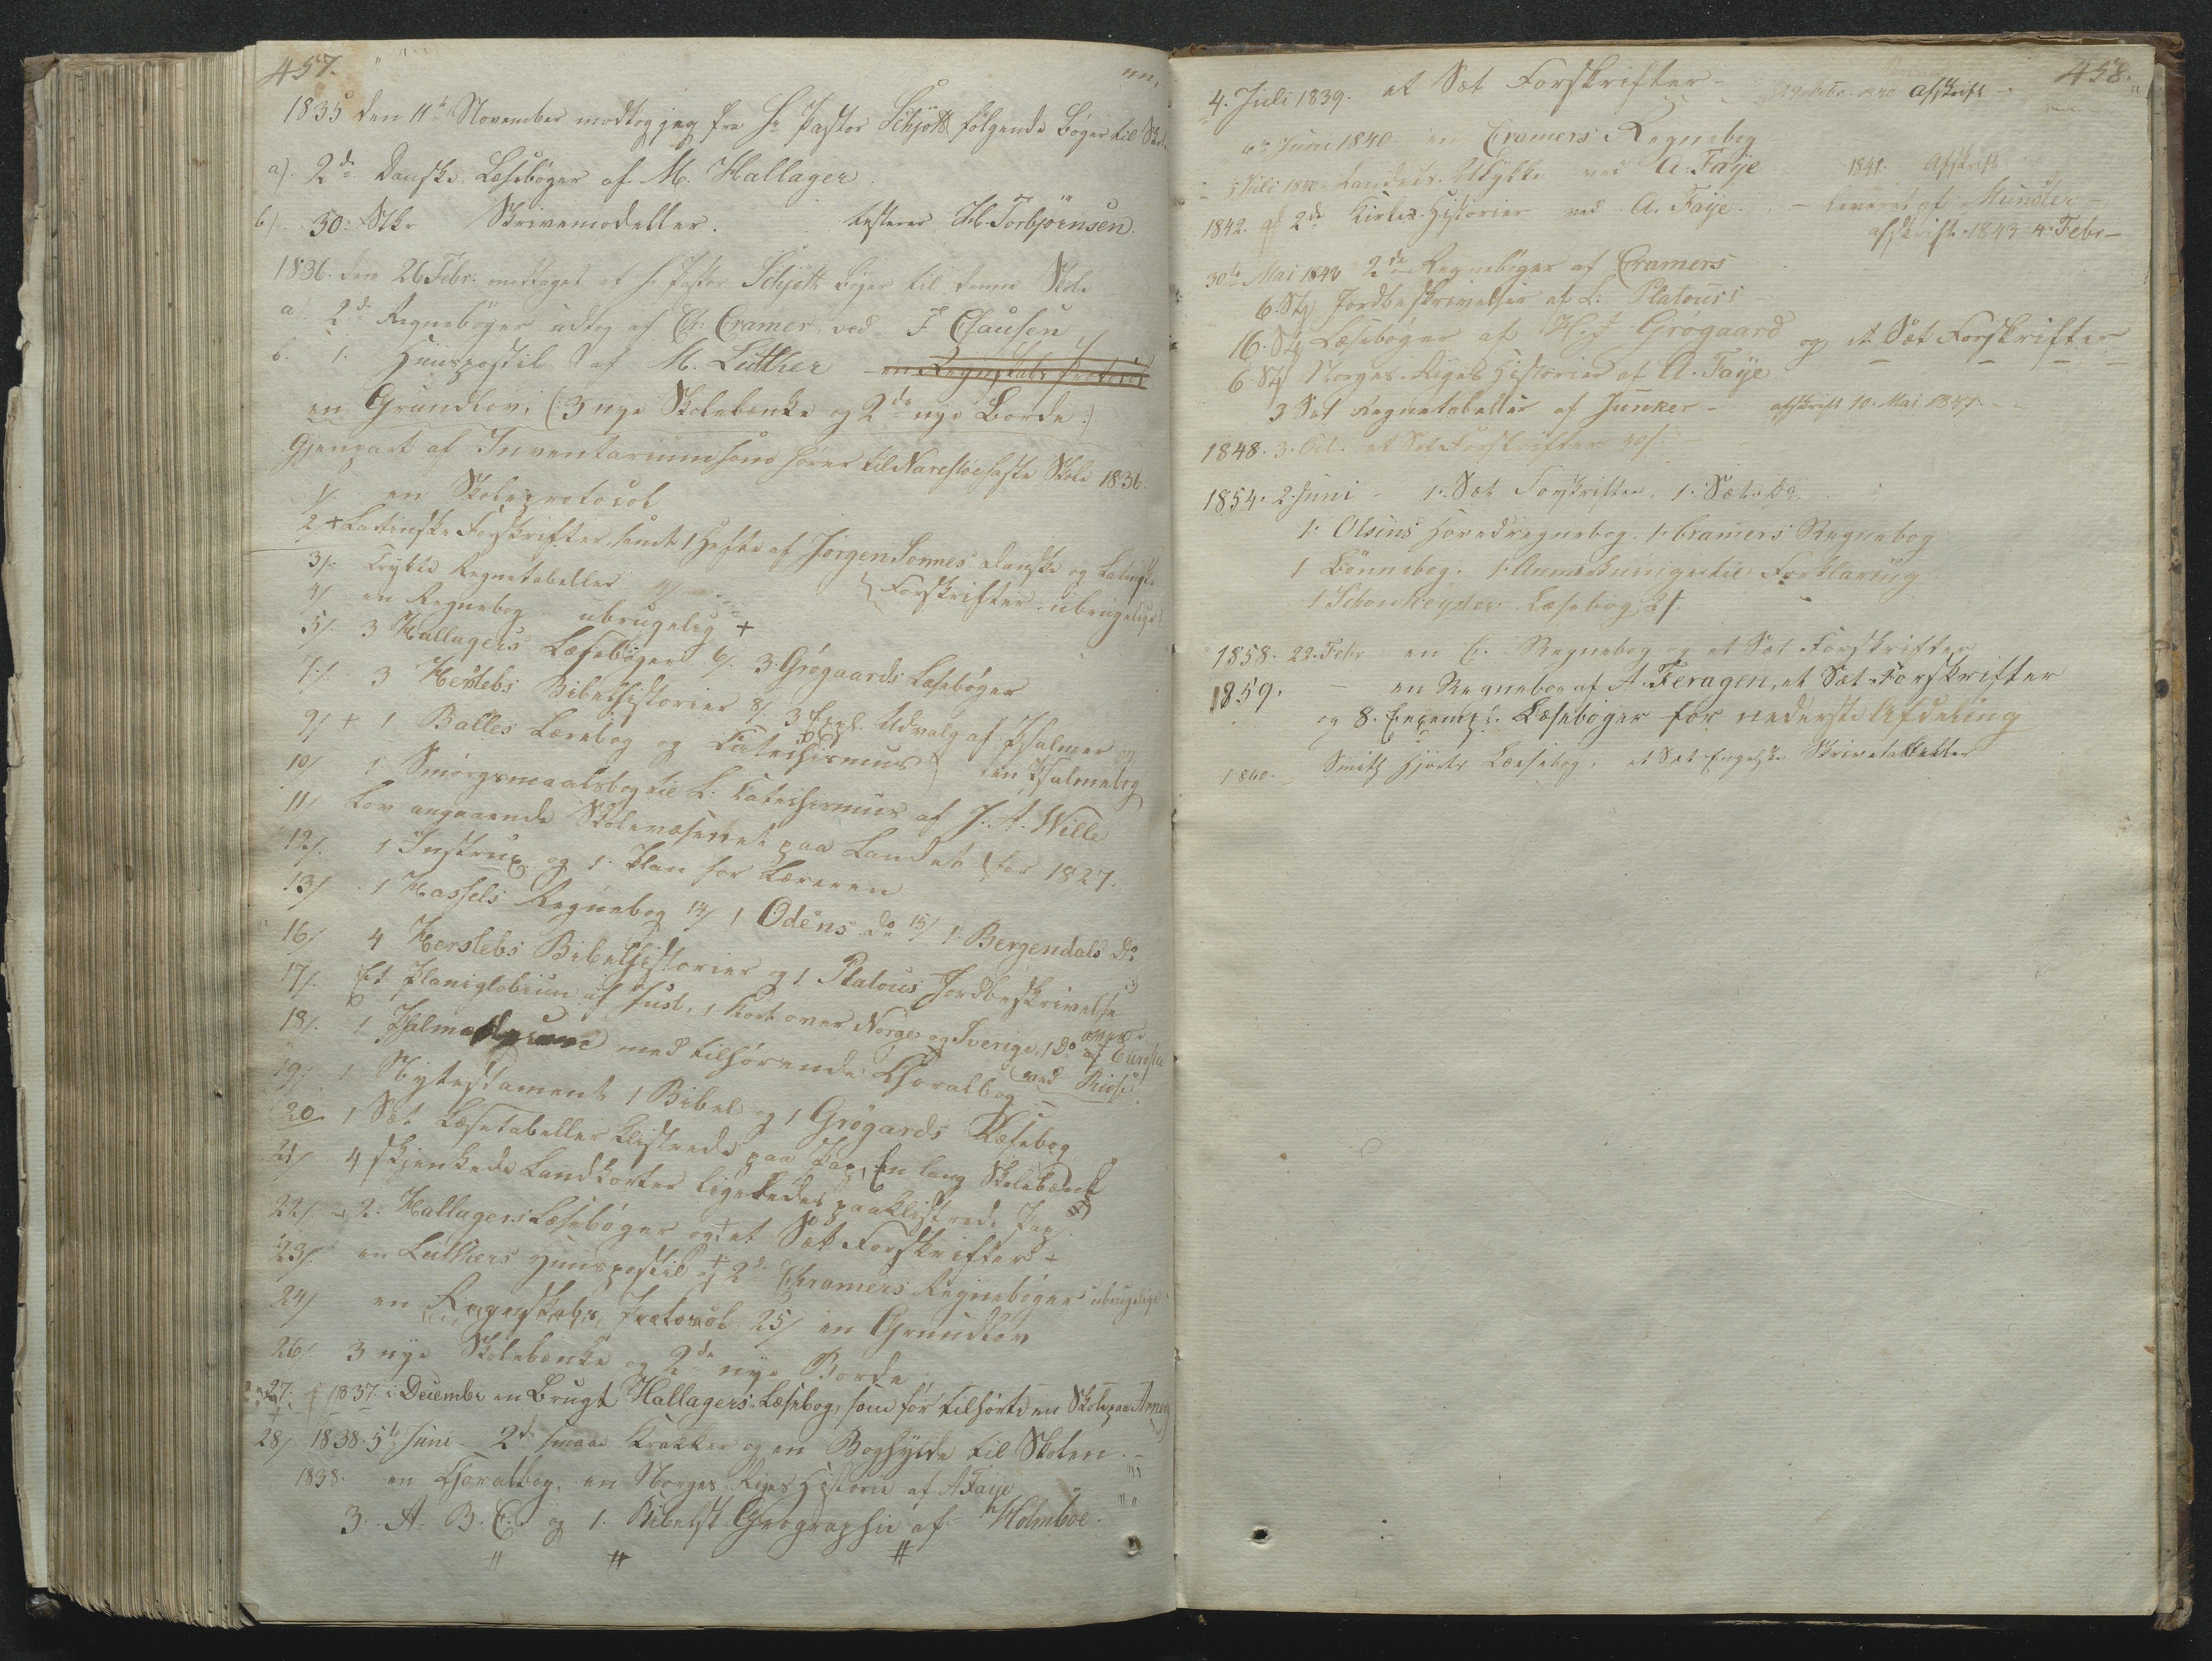 457.
1835 den 11te November modtog jeg fra Hr Pastor Schjött følgende Bøger til
a). 2de Danske Læsebøger af M. Hallager.
b). 30. Stkr Skrivemodeller. testerer Torbjörnsen.
1836. den 26 Febr. modtaget af Hr Pastor Schjött Bøger til denne Skole
a 2de Regnebøger udtog af Cramer ved F. Clausen
b. 1. Huuspostil af M. Luther en Regnskabs Protocol
en Grundlov, (: 3 nye Skolebænke og 2de nye Borde :)
Gjenpart af Inventarium som hører til Narestøe faste Skole 1836.
1/ en Skoleprotocol
2 + Latinske Forskrifter, samt 1 Hefte af Jørgen Sonnes Danske og Latinske
Forskrifter. ubrugelige
3/. trykte Regnetabeller
4/ en Regnebog ubrugelig +
5/. 3 Hallagers Læsebøger 6/. 3 Grøgaards Læsebøger
7/. 3 Herslebs Bibelhistorier 8/ 3 Expl. Udvalg af Psalmer og
en Psalmebog
9/ + 1 Balles Lærebog og Catechismus
10/ 1 Spørgsmaalsbog til L. Catechismus af J. A. Wille
11/ Lov angaaende Skolevæsenet paa Landet for 1827.
12/. 1 Instrux og 1. Plan for Læreren
13/ 1 Hassels Regnebog 14/ 1 Odens do 15/ 1 Bergendals do
16/ 4 Herslebs Bibelhistorier og 1 Platous Jordbeskrivelse
17/. Et Planiglobium af Juel, 1 Kort over Norge og Sverige, 1 do af Europa
18/. 1 Psalmodicum med tilhørende Choralbog ved
19/ 1 Nytestament 1 Bibel og 1 Grøgards Læsebog
20 1 Sæt Læsetabeller klistrede paa Pap, En lang Skolebænk
21/ 4 skjenkede Landkorter ligeledes paaklistrede Pap
22/ 2. Hallagers Læsebøger og et Sæt Forskrifter +
23/. en Luthers Huuspostil og 2de Chramers Regnebøger ubrugelige
24/ en Regnskabs Protocol 25/ en Grundlov
26/ 3 nye Skolebænke og 2de nye Borde
27. 1837 i Decembr en Brugt Hallagers Læsebog, som før tilhørte en Skole paa
28/ 1838. 5te Juni 2de smaae Krakker og en Boghylde til Skolen. -
1838. en Choralbog, en Norges Riges Historie af A Faije
3. A. B. C. og 1. Bibelsk Geographie af Holmboe.
458.
4. Juli 1839. et Sæt Forskrifter - 29 Febr. 1840 afskrift -
Juni 1840 en Cramers Regnebog
5 Juli 1840 Landets Udstykke ved A. Faije 1841. Afskrift
1842. 2de Kirke-Historier ved A. Faije - leveret af Münster -
afskrift 1843 4 Febr -
30te Mai 2de Regnebøger af Cramers
6 Stk Jordbeskrivelser af L. Platous
16. Stk Læsebøger af Grögaard og et Sæt Forskrifter
6 Stk Norges Riges Historier af A. Faije
3 Sæt Regnetabeller af Junker - afskrift 10. Mai 1847.
1848. 3. et Sæt Forskrifter
1854. 2. Juni - 1. Sæt Forskrifter, 1. Sæt do
1. Olsens Hovedregnebog. 1. Cramers Regnebog
1 Bönnebog. 1. Anmærkninger til Forklaring
1 Schouheyder Læsebog
1858. 22. Febr en C. Regnebog og et Sæt Forskrifter
1859. - en Regnebog af A. Feragen, et Sæt Forskrifter
og 8. Exempl. Læsebøger for nederste Afdeling
1860. Smith Hjorts Læsebog, et Sæt Engelske Skrivetabeller